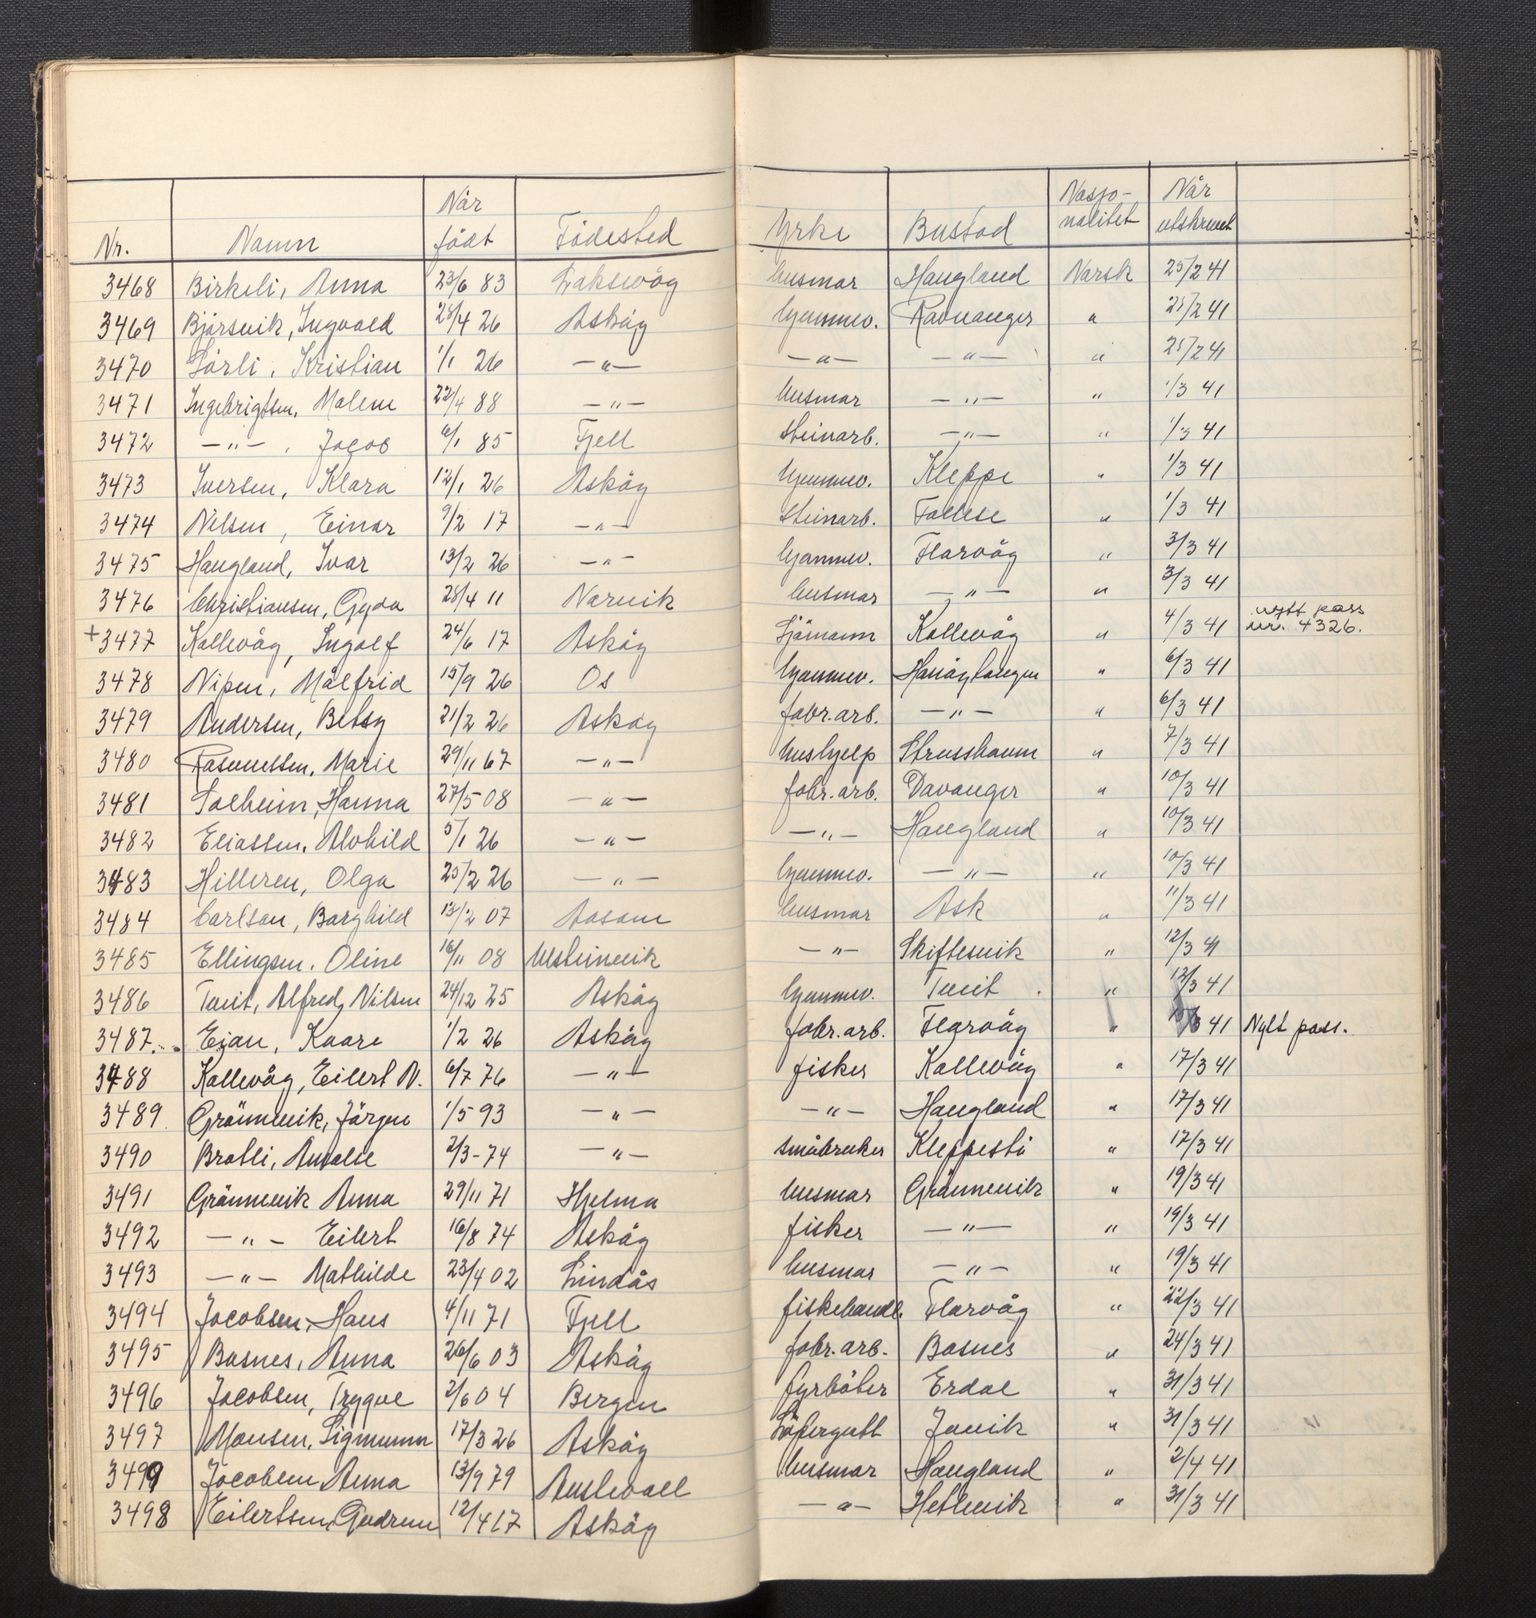 Nr. Namn Når født Fødested Yrke Bustad Nasjo-nalitet Når utskrevet
3468 Birkeli, Anna 23/6 83 Laksevåg husmor Haugland Norsk 25/2 41
3469 Bjørsvik, Ingvald 28/4 26 Askøy hjemmev. Ravnanger " 25/2 41
3470 Sørli, Kristian 1/1 26 —"— —"— —"— " 25/2 41
3471 Ingebrigtsen, Malene 22/4 88 —"— husmor —"— " 1/3 41
3472 —"—, Jacob 6/1 85 Fjell steinarb. —"— " 1/3 41
3473 Iversen, Klara 12/1 26 Askøy hjemmev. Kleppe " 1/3 41
3474 Nilsen, Einar 9/2 17 —"— steinarb. Follese " 1/3 41
3475 Haugland, Ivar 13/2 26 —"— hjemmev. Florvåg " 3/3 41
3476 Christiansen, Gyda 28/4 11 Narvik husmor —"— " 3/3 41
+3477 Kollevåg, Ingolf 24/6 17 Askøy Sjømann Kollevåg " 4/3 41 nytt pass nr. 4326.
3478 Nipen, Målfrid 15/9 26 Os hjemmev. Hanøytangen " 6/3 41
3479 Andersen, Betsy 21/2 26 Askøy fabr.arb. —"— " 6/3 41
3480 Rasmussen, Marie 29/11 67 —"— hushjelp Strusshamn " 7/3 41
3481 Solheim, Hanna 27/5 08 —"— fabr.arb. Davanger " 10/3 41
3482 Eliassen, Alvhild 5/1 26 —"— —"— Haugland " 10/3 41
3483 Hilleren, Olga 25/2 26 —"— hjemmev. —"— " 10/3 41
3484 Carlson, Borghild 13/2 07 husmor Ask " 11/3 41
3485 Ellingsen, Oline 16/11 08 —"— Skiftesvik " 12/3 41
3486 Tveit, Alfred Nilsen 24/12 25 Askøy hjemmev. Tveit " 13/3 41
3487. Eian, Kaare 1/2 26 Askøy fabr.arb. Florvåg " 41 Nytt pass.
3488 Kollevåg, Eilert N. 6/7 76 —"— fisker Kollevåg " 17/3 41
3489 Grönnevik, Jörgen 1/5 93 —"— —"— Haugland " 17/3 41
3490 Bratli, Anselie 2/3-74 —"— småbruker Kleppestö " 17/3 41
3491 Grönnevik Anna 29/11 71 Hjelma husmor Grönnevik " 19/3 41
3492 —"— Eilert 16/8 74 Askøy fisker —"— " 19/3 41
3493 —"— Mathilde 23/4 02 Lindås husmor —"— " 19/3 41
3494 Jacobsen, Hans 4/11 71 Fjell fiskehandl. Florvåg " 22/3 41
3495 Basnes, Anna 26/6 03 Askøy fabr.arb. Basnes " 24/3 41
3496 Jacobsen, Trygve 2/6 04 Bergen fyrböter Erdal " 31/3 41
3497 Monsen, Sigmunn 17/3 26 Askøy Löpergutt Juvik " 31/3 41
3499 Jacobsen Anna 13/9 79 Austevoll husmor Haugland " 2/4 41
3498 Eilertsen, Gudrun 12/4 17 Askøy —"— Hetlevik " 31/3 41